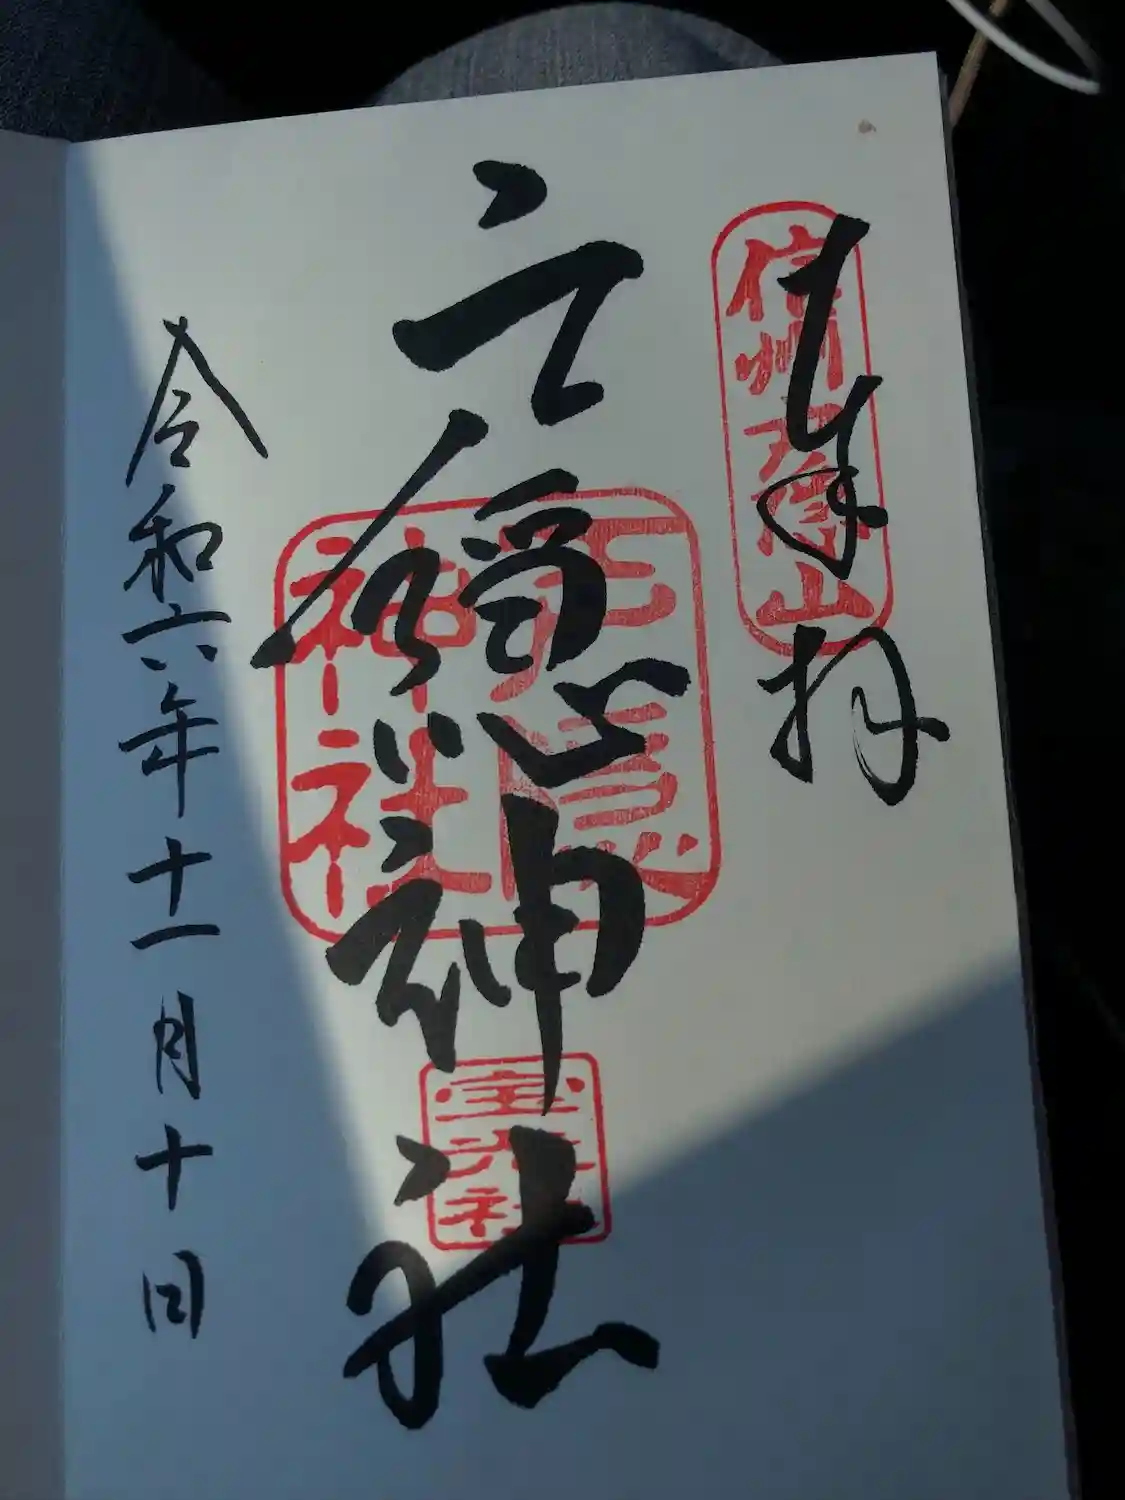 奉拝
信州戸隠山
戸隱神社
戸隱神社
宝光社
令和六年十一月十日